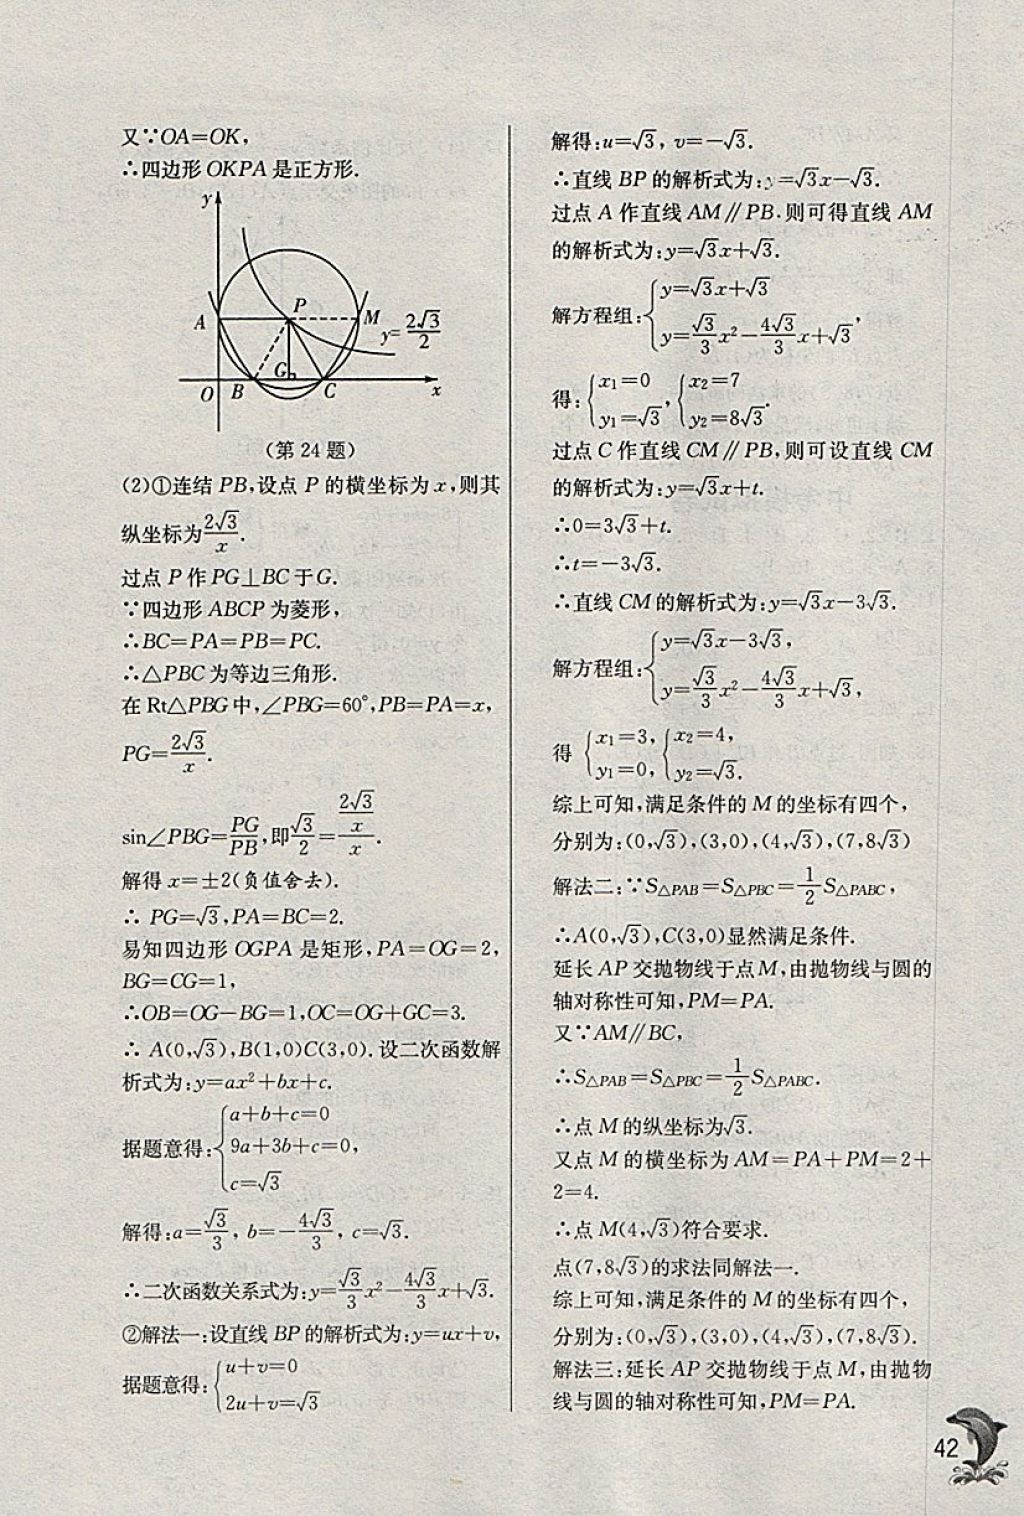 又∵OA=OK，
∴四边形OKPA是正方形.
y
A
P
M
y=2√3/2
G
O
B
C
x
(第24题)
(2)①连结PB，设点P的横坐标为x，则其
纵坐标为2√3/x.
过点P作PG⊥BC于G.
∵四边形ABCP为菱形，
∴BC=PA=PB=PC.
∴△PBC为等边三角形.
在Rt△PBG中，∠PBG=60°，PB=PA=x，
PG=2√3/x.
sin∠PBG=PG/PB，即√3/2=(2√3/x)/x.
解得x=±2(负值舍去).
∴ PG=√3，PA=BC=2.
易知四边形OGPA是矩形，PA=OG=2，
BG=CG=1，
∴OB=OG-BG=1，OC=OG+GC=3.
∴ A(0,√3)，B(1,0)C(3,0). 设二次函数解
析式为:y=ax²+bx+c.
据题意得:{a+b+c=0
9a+3b+c=0，
c=√3
解得:a=√3/3，b=-4√3/3，c=√3.
∴二次函数关系式为:y=√3/3x²-4√3/3x+√3.
②解法一:设直线BP的解析式为:y=ux+v，
据题意得:{u+v=0
2u+v=√3
解得:u=√3，v=-√3.
∴直线BP的解析式为:y=√3x-√3.
过点A作直线AM∥PB.则可得直线AM
的解析式为:y=√3x+√3.
解方程组:{y=√3x+√3
y=√3/3x²-4√3/3x+√3，
得:{x₁=0 y₁=√3，{x₂=7 y₂=8√3.
过点C作直线CM∥PB，则可设直线CM
的解析式为:y=√3x+t.
∴0=3√3+t.
∴t=-3√3.
∴直线CM的解析式为:y=√3x-3√3.
解方程组:{y=√3x-3√3，
y=√3/3x²-4√3/3x+√3，
得 {x₁=3，y₁=0，{x₂=4，y₂=√3.
综上可知，满足条件的M的坐标有四个，
分别为:(0,√3)，(3,0)，(4,√3)，(7,8√3)
解法二:∵S△PAB=S△PBC=1/2S△PABC，
∴A(0,√3)，C(3,0)显然满足条件.
延长AP交抛物线于点M，由抛物线与圆的
轴对称性可知，PM=PA.
又∵AM∥BC，
∴S△PAB=S△PBC=1/2S△PABC.
∴点M的纵坐标为√3.
又点M的横坐标为AM=PA+PM=2+
2=4.
∴点M(4,√3)符合要求.
点(7,8√3)的求法同解法一.
综上可知，满足条件的M的坐标有四个，
分别为:(0,√3)，(3,0)，(4,√3)，(7,8√3).
解法三:延长AP交抛物线于点M，由抛物
线与圆的轴对称性可知，PM=PA.
42